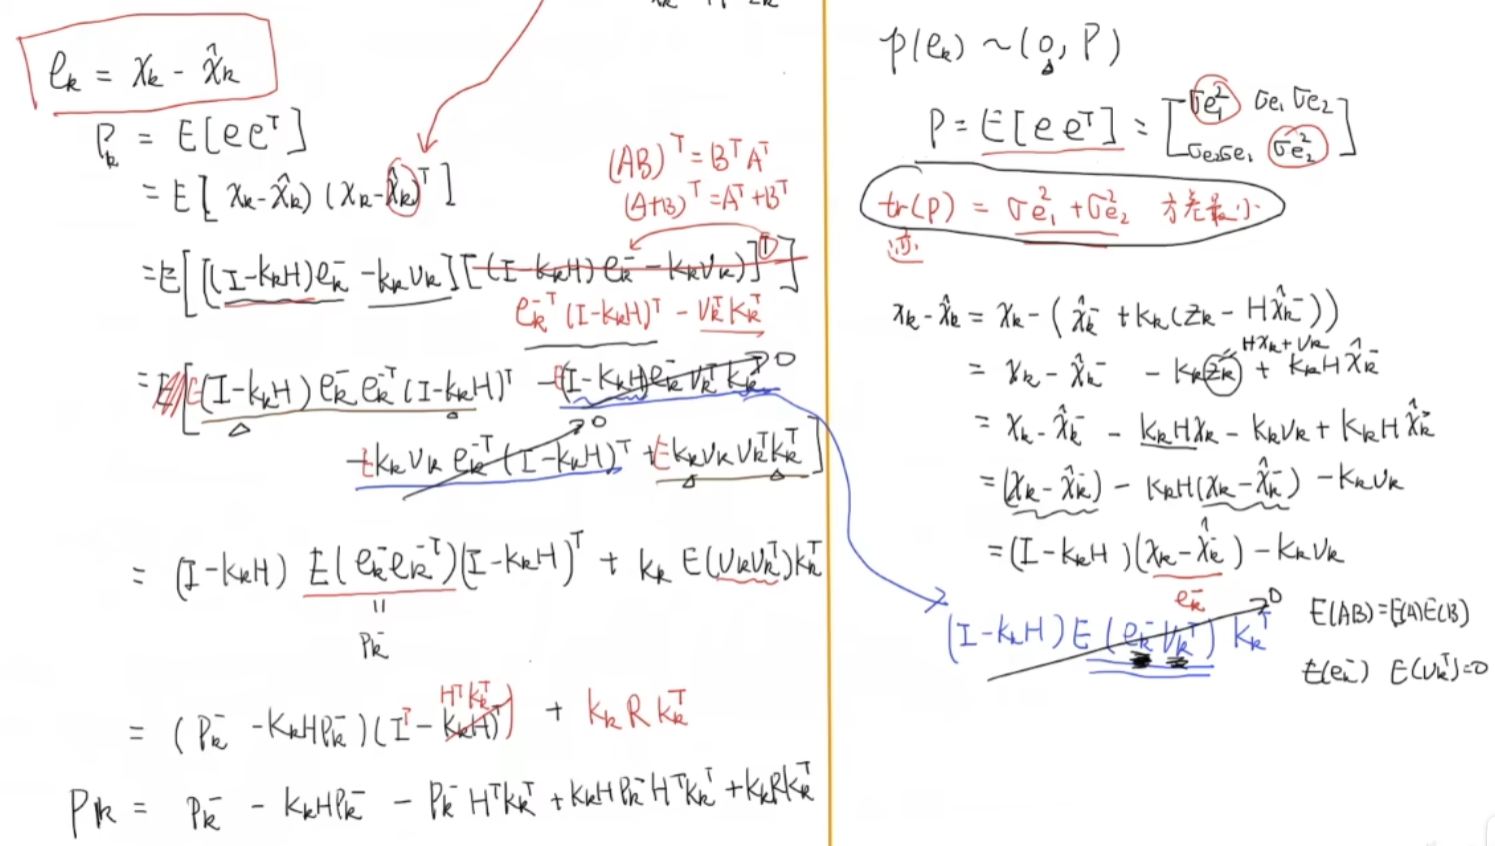 e_k = x_k - x̂_k
P_k = E[e e^T]
= E[ x_k - x̂_k) (x_k - x̂_k)^T ]
(AB)^T = B^T A^T
(A+B)^T = A^T + B^T
= E[[(I-k_kH)e_k^- - k_kv_k][(I-k_kH)e_k^- - k_kv_k)]^T]
e_k^-T (I-k_kH)^T - v_k^T k_k^T
= E[E(I-k_kH) e_k^- e_k^-T (I-k_kH)^T - E(I-k_kH)e_k^- v_k^T k_k^T → 0
- E k_k v_k e_k^-T (I-k_kH)^T → 0 + E k_k v_k v_k^T k_k^T]
= (I-k_kH) E(e_k^- e_k^-T)(I-k_kH)^T + k_k E(v_k v_k^T)k_k^T
=
P_k^-
H^T k_k^T
= (P_k^- - k_kHP_k^-)(I^T - k_kH)^T) + k_k R k_k^T
P_k = P_k^- - k_kHP_k^- - P_k^- H^T k_k^T + k_kHP_k^-H^Tk_k^T + k_kRk_k^T
p(e_k) ~ (0, P)
P = E[e e^T] = [σe_1^2 σe_1 σe_2
σe_2σe_1 σe_2^2]
tr(P) = σe_1^2 + σe_2^2 方差最小
迹
x_k - x̂_k = x_k - (x̂_k^- + k_k(z_k - Hx̂_k^-))
Hx_k + v_k
= x_k - x̂_k^- - k_k z_k + k_kH x̂_k^-
= x_k - x̂_k^- - k_kHx_k - k_kv_k + k_kH x̂_k^-
= (x_k - x̂_k^-) - k_kH(x_k - x̂_k^-) - k_kv_k
= (I-k_kH)(x_k - x̂_k^-) - k_kv_k
e_k^-
(I-k_kH) E(e_k^- v_k^T) k_k^T → 0
E(AB) = E(A)E(B)
E(e_k^-) E(v_k^T) = 0